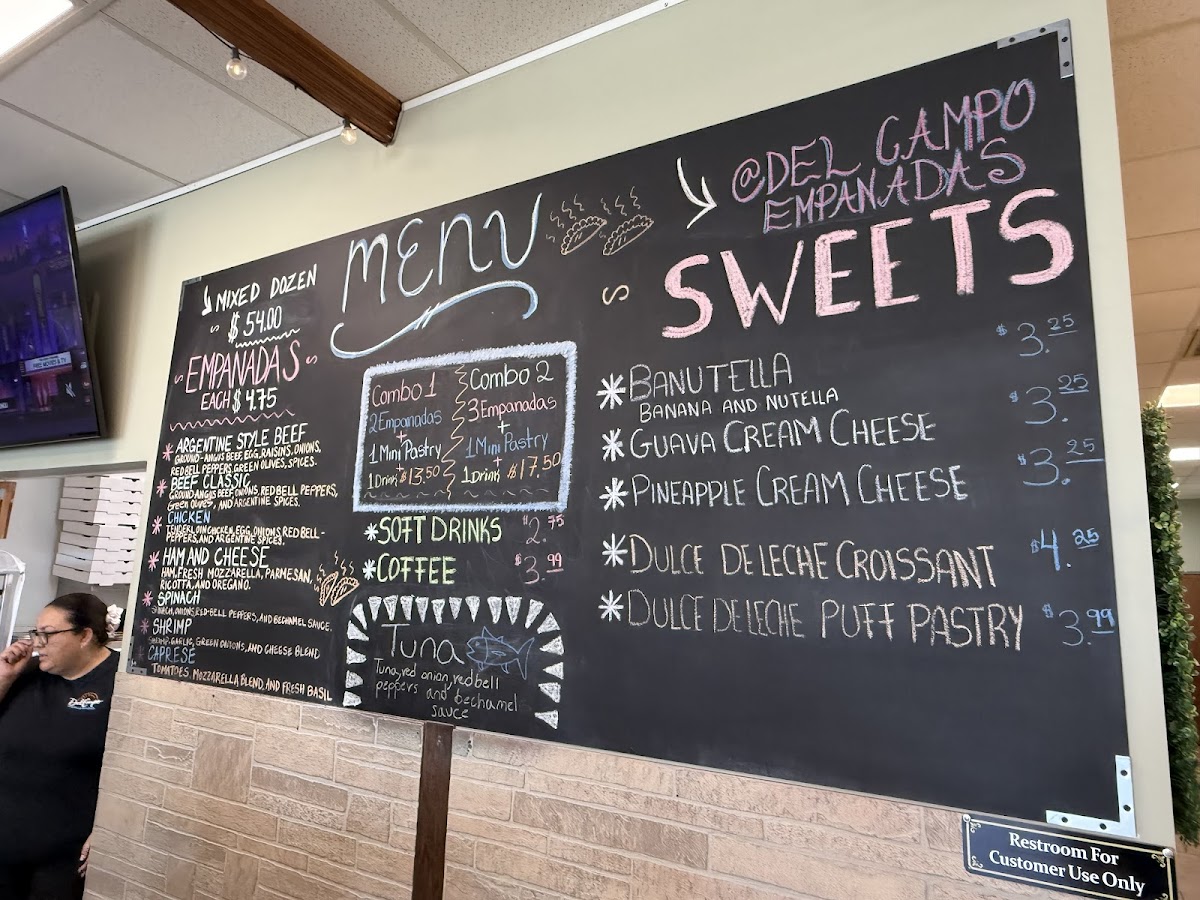 MIXED DOZEN
$54.00
EMPANADAS
EACH $4.75
ARGENTINE STYLE BEEF
GROUND-ANGUS BEEF, EGG, RAISINS, ONIONS,
RED BELL PEPPERS, GREEN OLIVES, SPICES.
BEEF CLASSIC
GROUND ANGUS BEEF, ONIONS, RED BELL PEPPERS,
Green olives, AND ARGENTINE SPICES.
CHICKEN
TENDERLOIN CHICKEN, EGG, ONIONS, RED BELL-
PEPPERS, AND ARGENTINE SPICES.
HAM AND CHEESE
HAM, FRESH MOZZARELLA, PARMESAN,
RICOTTA, AND OREGANO.
SPINACH
ONIONS, RED-BELL PEPPERS, AND BECHAMEL SAUCE.
SHRIMP
SHRIMP, GARLIC, GREEN ONIONS, AND CHEESE BLEND
CAPRESE
TOMATOES, MOZZARELLA BLEND, AND FRESH BASIL
MENU
Combo 1
2 Empanadas
+
1 Mini Pastry
+
1 Drink $13.50
Combo 2
3 Empanadas
+
1 Mini Pastry
+
1 Drink $17.50
SOFT DRINKS $2.75
COFFEE $3.99
Tuna
Tuna, red onion, red bell
peppers and bechamel
sauce
@DEL CAMPO
EMPANADAS
SWEETS
BANUTELLA $3.25
BANANA AND NUTELLA
GUAVA CREAM CHEESE $3.25
PINEAPPLE CREAM CHEESE $3.25
DULCE DE LECHE CROISSANT $4.25
DULCE DE LECHE PUFF PASTRY $3.99
Restroom For
Customer Use Only